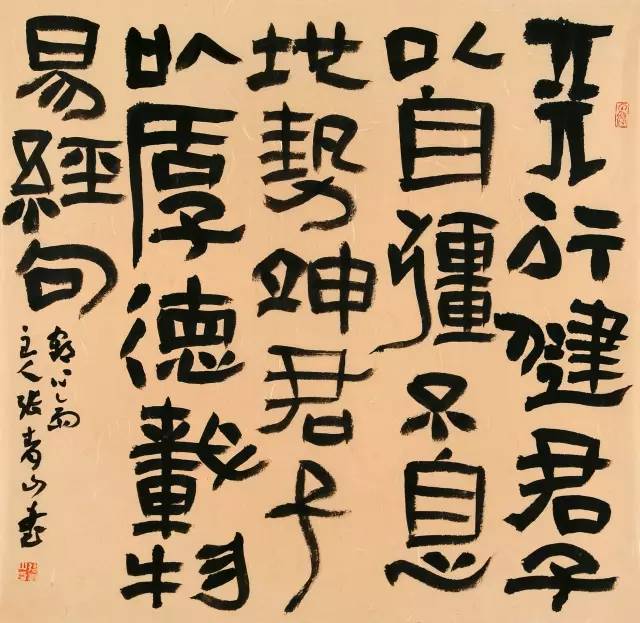 天行健君子
以自彊不息
地勢坤君子
以厚德載物
易經句
雨
主人張青山書